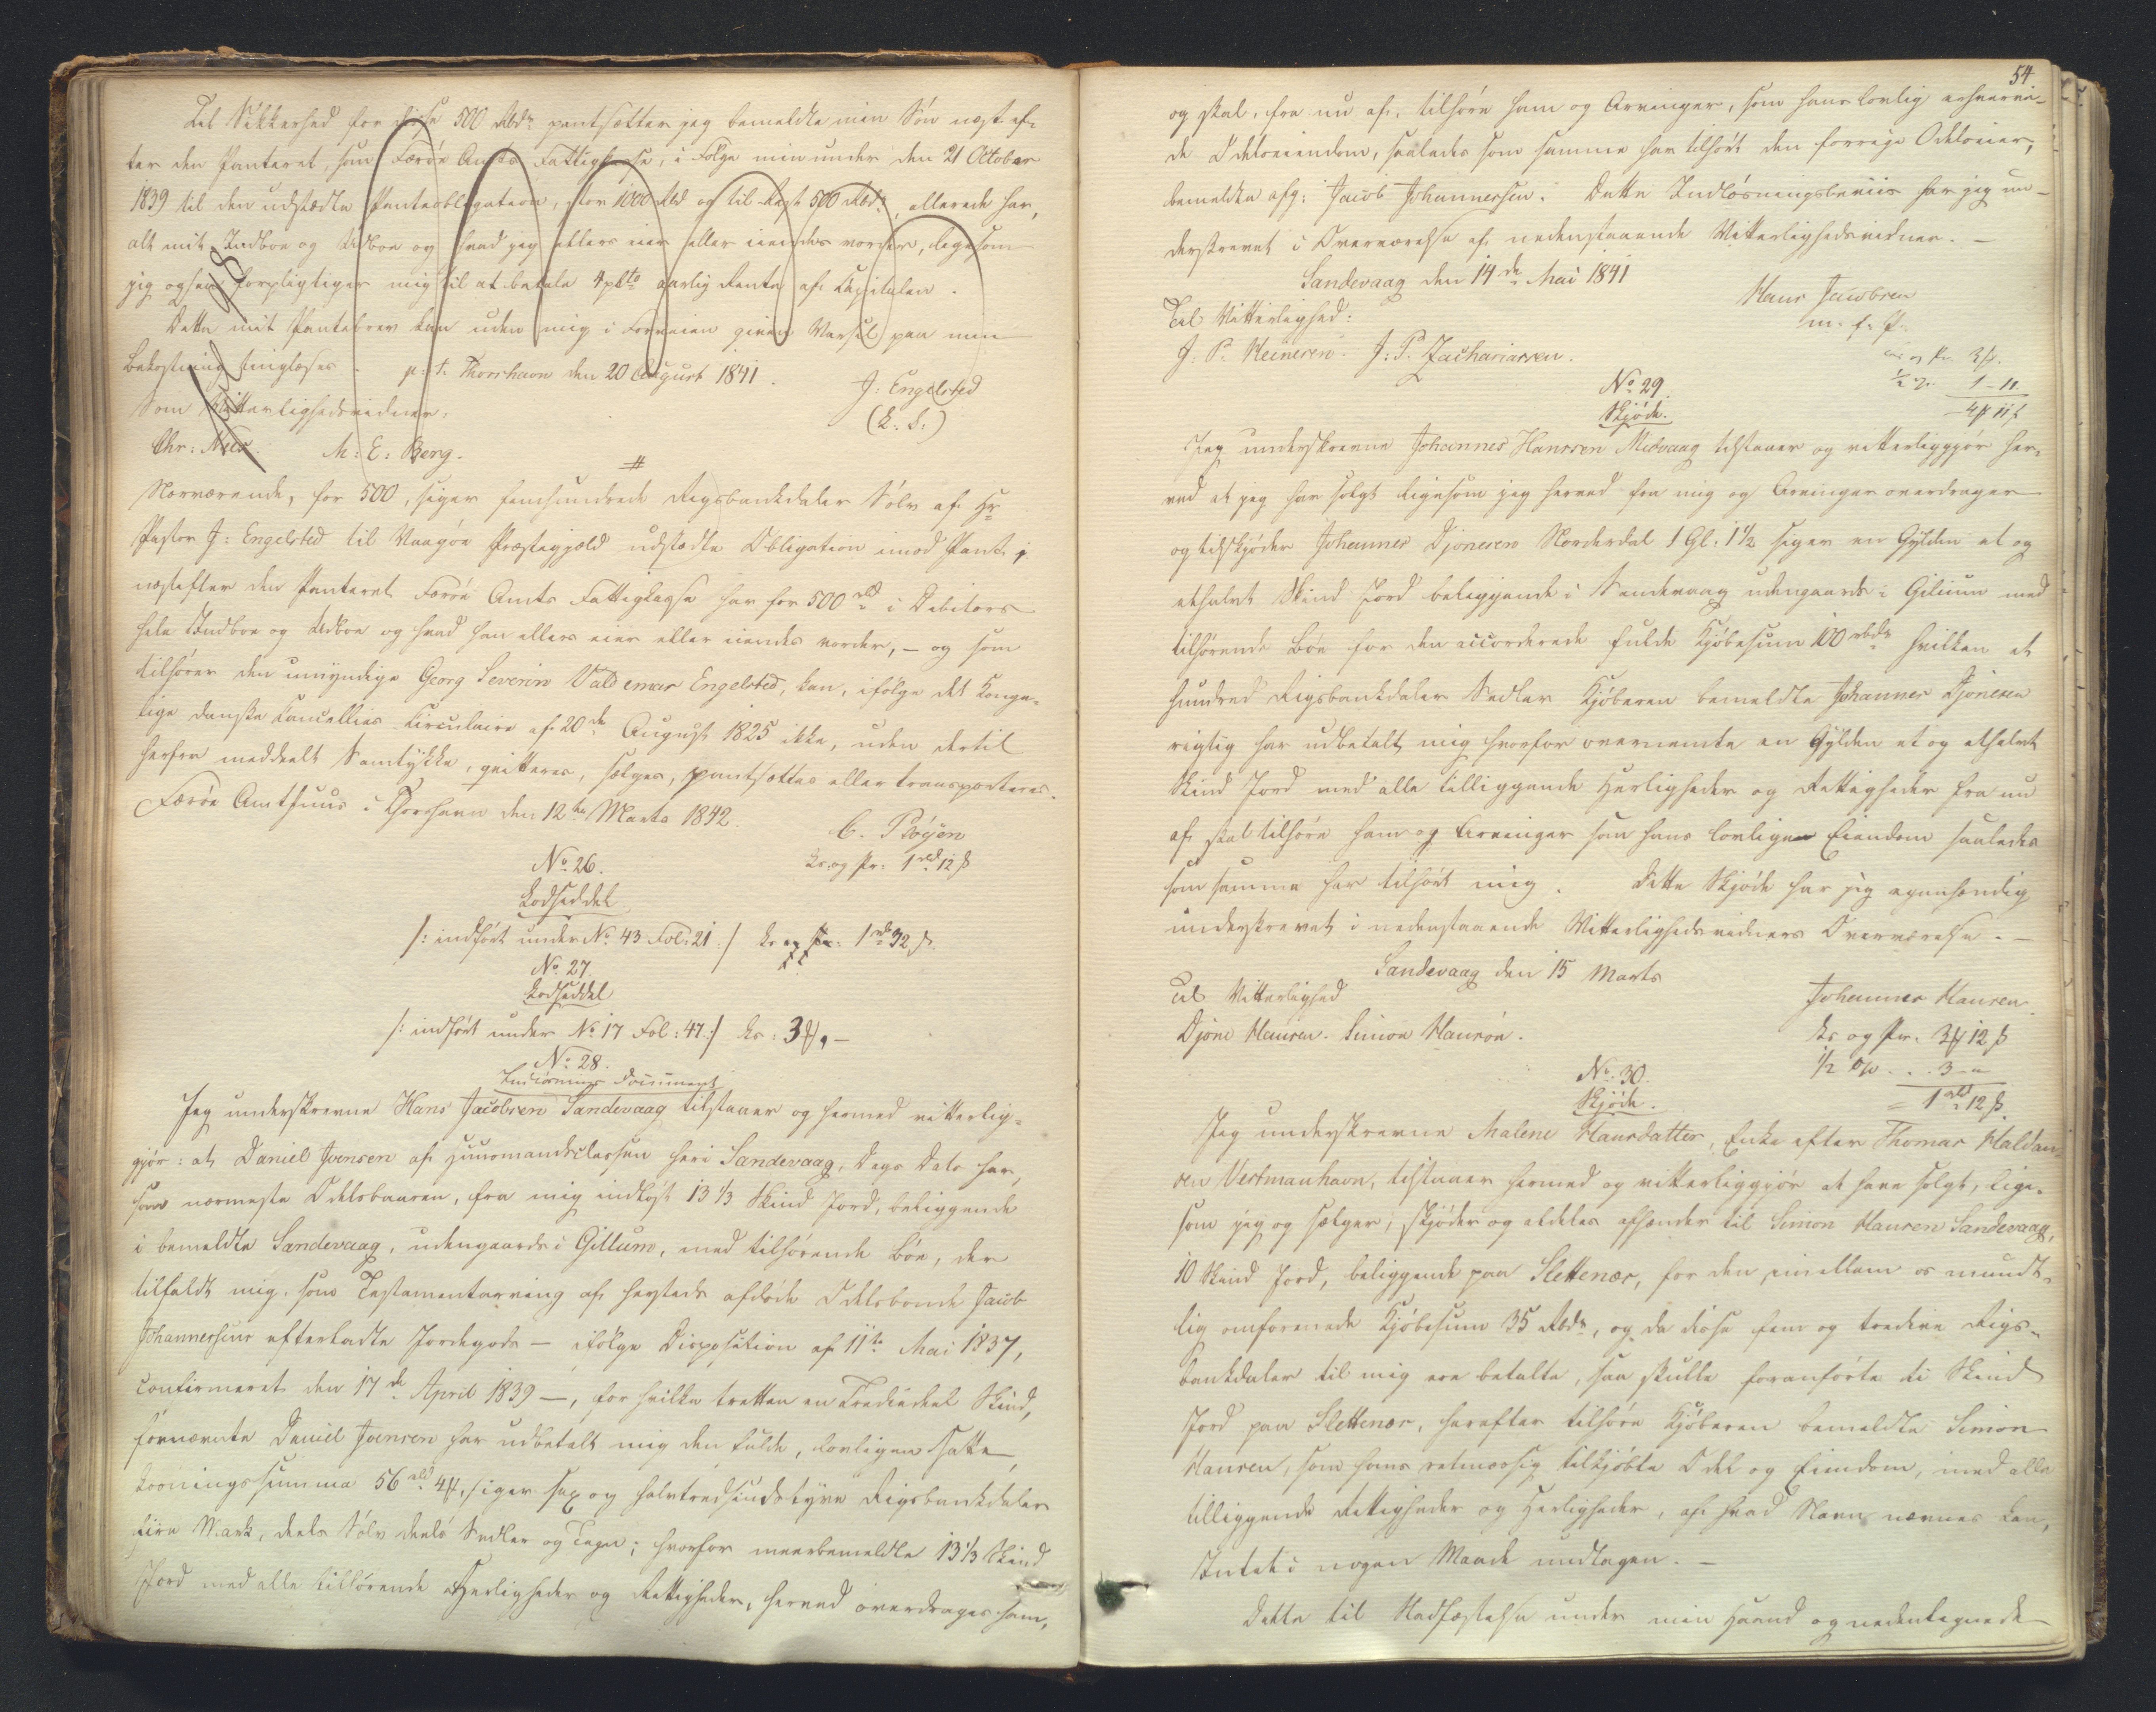 Til Sikkerhed for disse 500 Rbdr pantsætter jeg bemeldte min Sön næst ef-
ter den Panteret, som Færöe Amts Fattigkasse, i Fölge min under den 21 October
1839 til den udstædte Panteobligation, stor 1000 Rbd og til Rest 500 Rbdr, allerede har,
alt mit Indboe og Udboe og hvad jeg ellers eier eller eiendes vorder, ligesom
jeg ogsaa forpligtiger mig til at betale 4 pCto aarlig Rente af Capitalen.
Dette mit Pantebrev kan uden mig i Forveien given Varsel paa min
Bekostning tinglæses. p: t: Thorshavn den 20 August 1841.
J: Engelsted
(L. S.)
Som Vitterlighedsvidner:
Chr: M: E: Berg.
Nærværende, for 500, siger femhundrede Rigsbankdaler Sölv af Hr
Pastor J: Engelsted til Vaagöe Præstegjæld udstædte Obligation imod Pant i
næstefter den Panteret Færöe Amts Fattigkasse har for 500 rbd i Debitors
hele Indboe og Udboe og hvad han ellers eier eller eiendes vorder, – og som
tilhörer den umyndige Georg Severin Valdemar Engelsted, kan, ifölge det Konge-
lige danske Cancellies Circulaire af 20de August 1825 ikke, uden dertil
herfra meddeelt Samtykke, qvitteres, sælges, pantsættes eller transporteres.
Færöe Amthuus i Thorshavn den 12te Marts 1842.
C. Plöyen
No 26. Ls. og Pr: 1 rbd 12 ß
Lodseddel
/: indfört under No 43 Fol: 21 :/ Ls og Pr: 1 rbd 32 ß
No 27.
Lodseddel
/: indfört under No 17 Fol: 47 :/ Ls: 3 ℔, –
No 28.
Indlösnings Document
Jeg underskrevne Hans Jacobsen Sandevaag tilstaaer og hermed vitterlig-
gjör: at Daniel Joensen af Huusmandsclassen heri Sandevaag, Dags Dato har,
som nærmeste Odelsbaaren, fra mig indlöst 13 1/3 Skind Jord, beliggende
i bemeldte Sandevaag, udengaards i Gillum, med tilhörende Böe, der
tilfaldt mig som Testamentarving af hersteds afdöde Odelsbonde Jacob
Johannesens efterladte Jordegods – ifölge Disposition af 11te Mai 1837,
confirmeret den 17de April 1839 –, for hvilke tretten en Trediedeel Skind,
fornævnte Daniel Joensen har udbetalt mig den fulde, lovligen satte
Lösningssumma 56 rbd 4 ℔, siger sex og halvtredsindstyve Rigsbankdaler
fire Mark, deels Sölv deels Sedler og Tegn; hvorfor meerbemeldte 13 1/3 Skind
Jord med alle tilhörende Herligheder og Rettigheder, herved overdrages ham,
54
og skal, fra nu af, tilhöre ham og Arvinger, som hans lovlig erhvervde
Odelseiendom, saaledes som samme har tilhört den forrige Odelseier,
bemeldte afg: Jacob Johannessen. Dette Indlösningsbeviis har jeg un-
derskrevet i Overværelse af nedenstaaende Vitterlighedsvidner. –
Sandevaag den 14de Mai 1841
Hans Jacobsen
m. f. P.
Til Vitterlighed:
J. P. Heinesen. J: P. Zachariassen.
Ls og Pr. 3 ℔.
1/2 % 1 – 11.
– 4 ℔ 11 ß
No 29.
Skjöde.
Jeg underskrevne Johannes Hanssen Midvaag tilstaaer og vitterliggjör her-
ved at jeg har solgt ligesom jeg herved fra mig og Arvinger overdrager
og tilskjöder Johannes Djonesen Norderdal 1 Gl. 1 1/2 siger en Gylden et og
ethalvt Skind Jord beliggende i Sandevaag udengaards i Gilium med
tilhörende Böe for den accorderede fulde Kjöbesum 100 rbdr hvilken et
hundred Rigsbankdaler Sedler Kjöberen bemeldte Johannes Djonesen
rigtig har udbetalt mig hvorfor ovennævnte en Gylden et og ethalvt
Skind Jord med alle tilliggende Herligheder og Rettigheder fra nu
af skal tilhöre ham og Arvinger som hans lovlige Eiendom saaledes
som samme har tilhört mig. Dette Skjöde har jeg egenhændig
underskrevet i nedenstaaende Vitterlighedsvidners Overværelse. –
Sandevaag den 15 Marts
Johannes Hansen
Til Vitterlighed
Djone Hansen. Simon Hansen.
Ls og Pr. 3 ℔ 12 ß
1/2 % . . 3 – „
= 1 rbd 12 ß.
No. 30.
Skjöde.
Jeg underskrevne Malene Hansdatter, Enke efter Thomas Haldan-
sen Vestmanhavn, tilstaaer hermed og vitterliggjör at have solgt, lige-
som jeg og sælger, skjöder og aldeles afhænder til Simon Hansen Sandevaag,
10 Skind Jord, beliggende paa Slettenæs, for den imellem os mundt-
lig omforenede Kjöbesum 35 Rbdr, og da disse fem og tredive Rigs-
bankdaler til mig ere betalte, saa skulle foranförte ti Skind
Jord paa Slettenæs, herefter tilhöre Kjöberen bemeldte Simon
Hansen, som hans retmæssig tilkjöbte Odel og Eiendom, med alle
tilliggende Rettigheder og Herligheder, af hvad Navn nævnes kan,
Intet i nogen Maade undtagen. –
Dette til Stadfæstelse under min Haand og nedentegnede